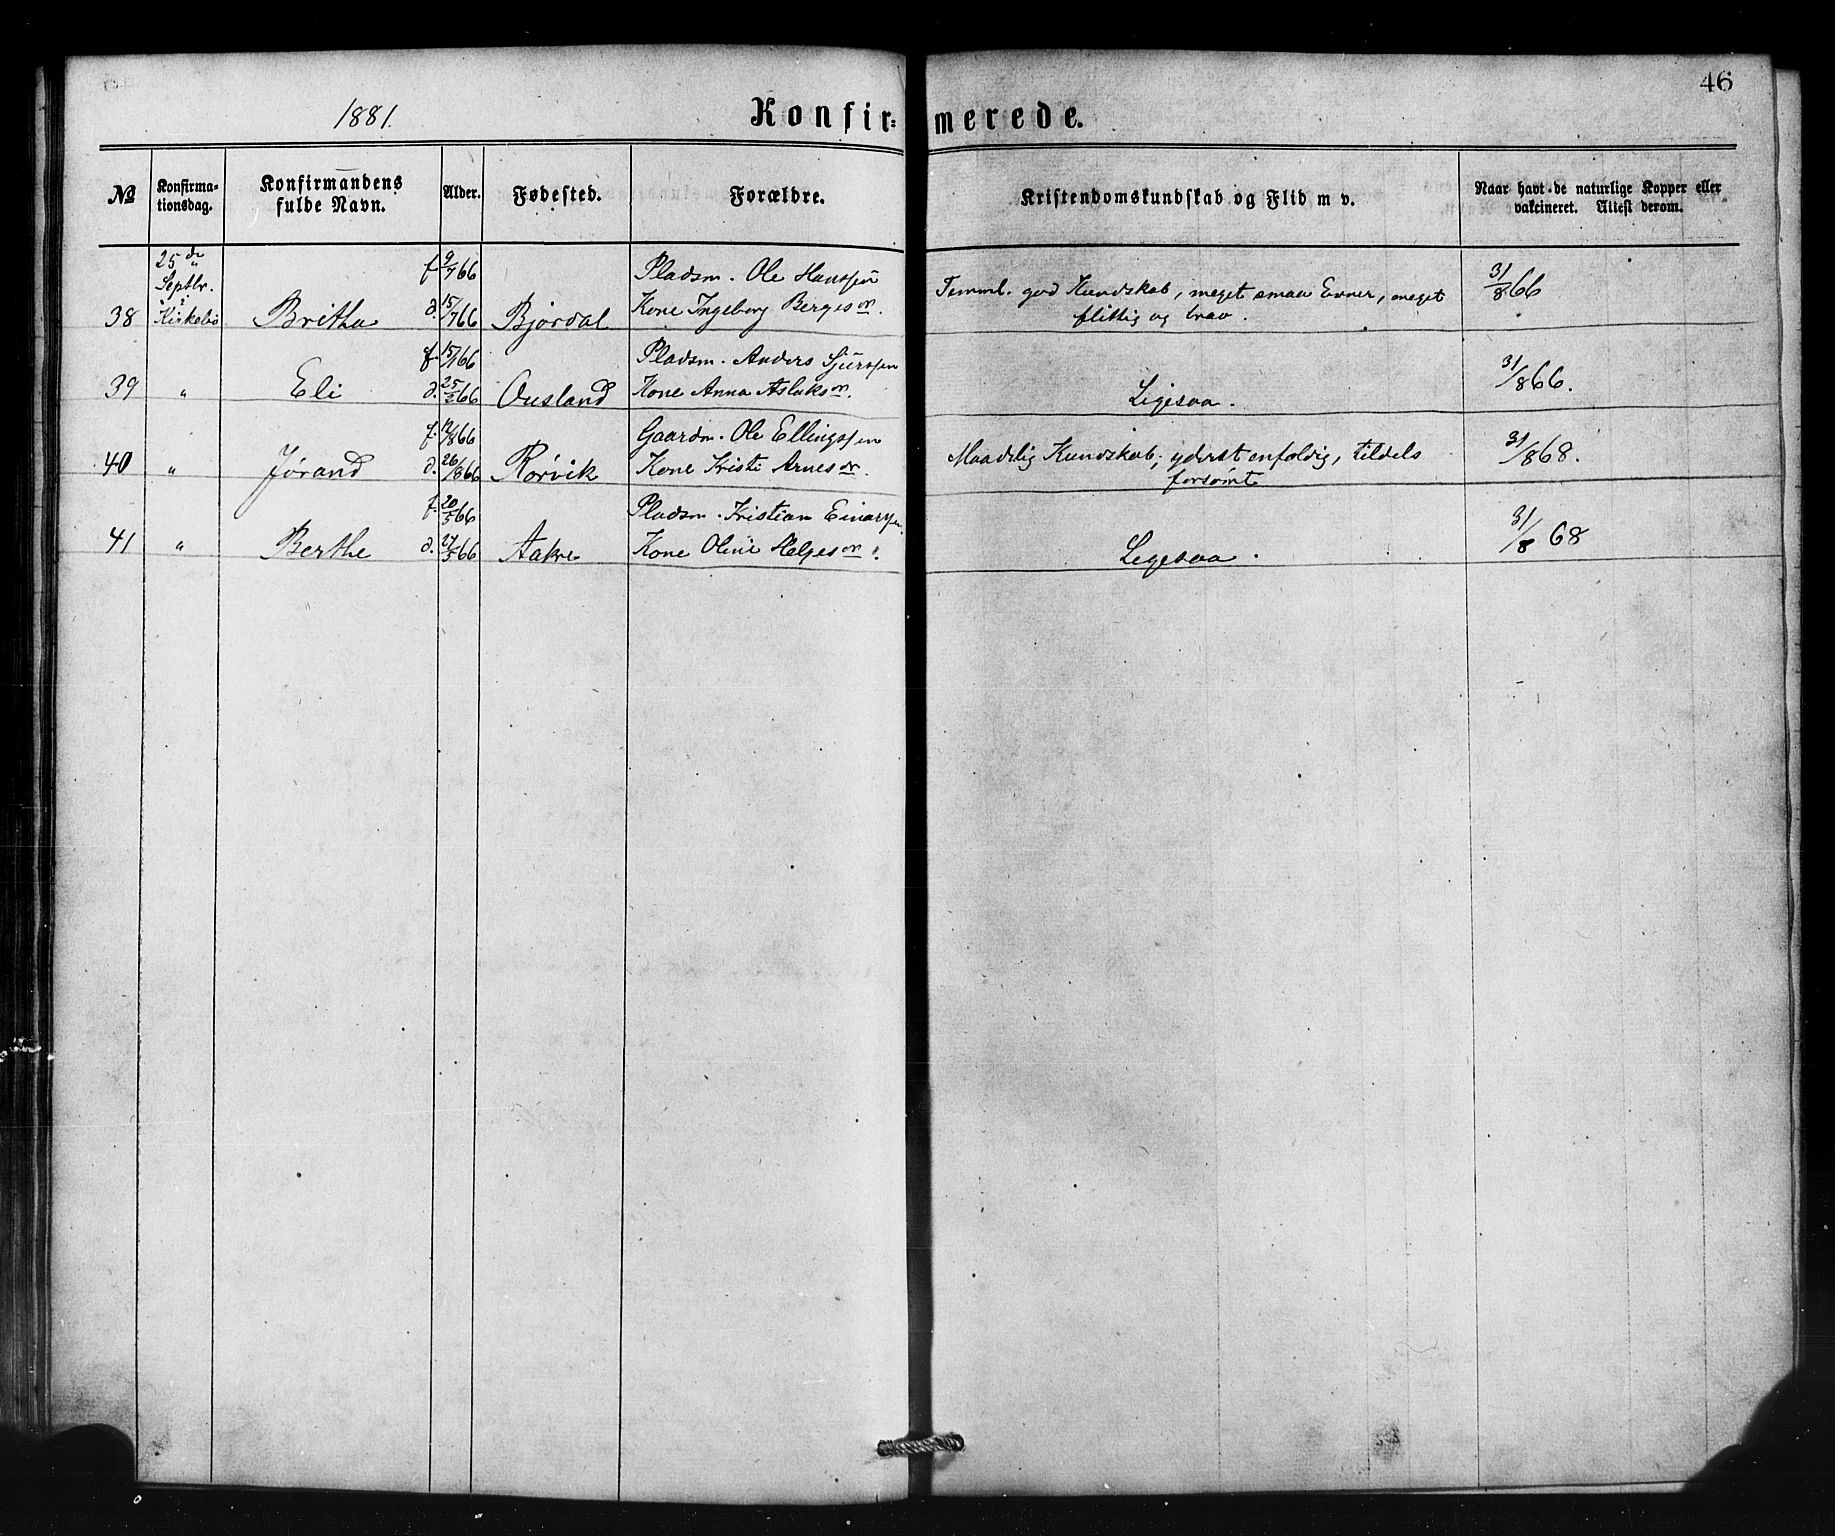 46
1881.
Konfir= merede.
No
Konfirma-
tionsdag.
Konfirmandens
fulde Navn.
Alder.
Fødested.
Forældre.
Kristendomskundskab og Flid m v.
Naar havt de naturlige Kopper eller
vakcineret. Attest derom.
25de
Septbr.
i
38 Kirkebø Britha f. 9/7 66 d. 15/7 66 Bjørdal
Pladsm. Ole Hanssøn
Kone Ingeborg Bergesdr.
Temml. god Kundskab, meget smaa Evner, meget
flittig og brav.
31/8 66
39 " Eli f. 15/1 66 d. 25/2 66 Ousland
Pladsm. Anders Sjurssen
Kone Anna Aslaksdr.
Ligesaa.
31/8 66.
40 " Jørand f. 12/8 66 d. 26/8 66 Rørvik
Gaardm. Ole Ellingssen
Kone Kristi Arnesdr.
Maadelig Kundskab, yderst enfoldig, tildels
forsømt
31/8 68.
41 " Berthe f. 20/5 66 d. 27/5 66 Aakre
Pladsm. Kristian Einarsen
Kone Oline Helgesdr.
Ligesaa.
31/8 68